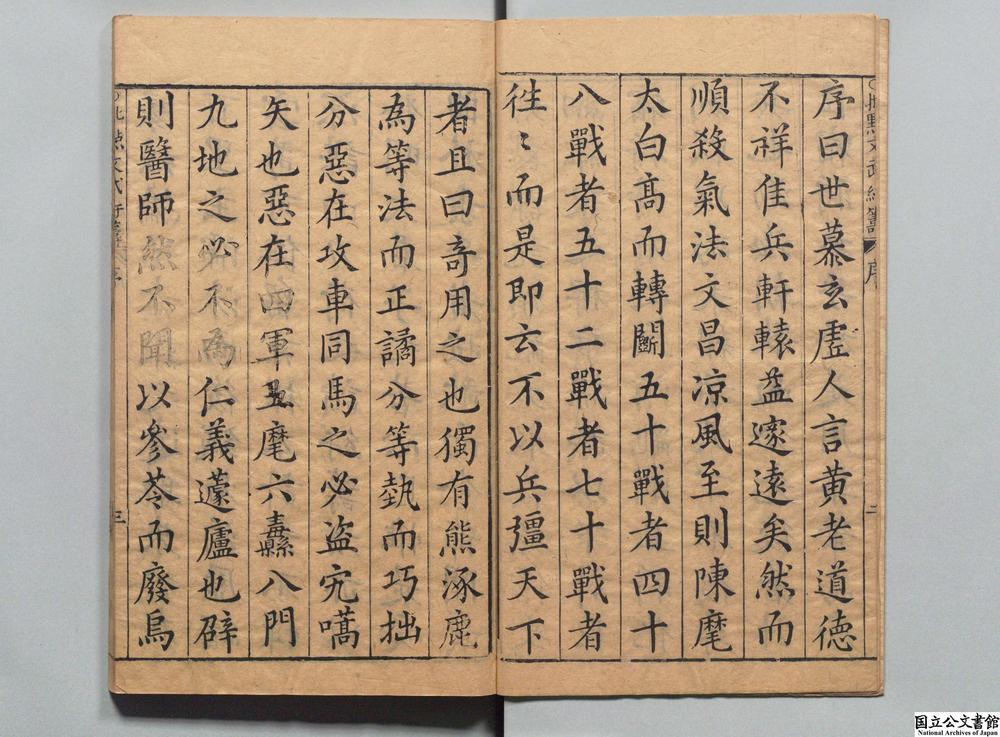 序曰世慕玄虛人言黄老道德
不祥佳兵軒轅益邃遠矣然而
順殺氣法文昌凉風至則陳麾
太白高而轉鬭五十戰者四十
八戰者五十二戰者七十戰者
徃〻而是即云不以兵彊天下
者且曰奇用之也獨有熊涿鹿
為等法而正譎分等埶而巧拙
分惡在攻車同馬之必盗宄嚆
矢也惡在四軍五麾六纛八門
九地之必不為仁義蘧廬也辟
則醫師然不聞以參苓而廢烏
序
二
三
国立公文書館
National Archives of Japan